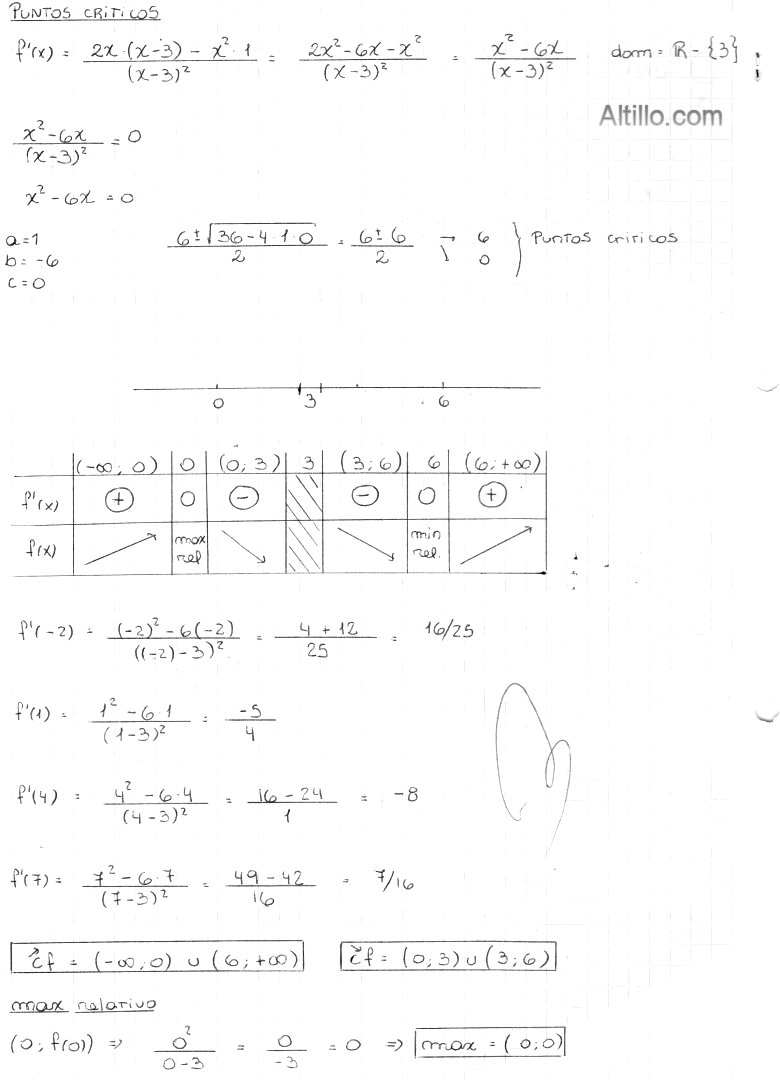 PUNTOS CRITICOS
f'(x) = (2x·(x-3) - x²·1)/(x-3)² = (2x²-6x-x²)/(x-3)² = (x²-6x)/(x-3)² dom = ℝ - {3}
Altillo.com
(x²-6x)/(x-3)² = 0
x²-6x = 0
a=1
b=-6
c=0
(6±√(36-4·1·0))/2 = (6±6)/2 → 6 ↘ 0 } PUNTOS CRITICOS
0 3 6
(-∞; 0) 0 (0; 3) 3 (3; 6) 6 (6; +∞)
f'(x) + 0 - - 0 +
f(x) ↗ max rel ↘ ↘ min rel. ↗
f'(-2) = ((-2)²-6(-2))/((-2)-3)² = (4+12)/25 = 16/25
f'(1) = (1²-6·1)/(1-3)² = -5/4
f'(4) = (4²-6·4)/(4-3)² = (16-24)/1 = -8
f'(7) = (7²-6·7)/(7-3)² = (49-42)/16 = 7/16
↗cf = (-∞; 0) ∪ (6; +∞) ↘cf = (0; 3) ∪ (3; 6)
max relativo
(0; f(0)) ⇒ 0²/(0-3) = 0/-3 = 0 ⇒ max = (0; 0)